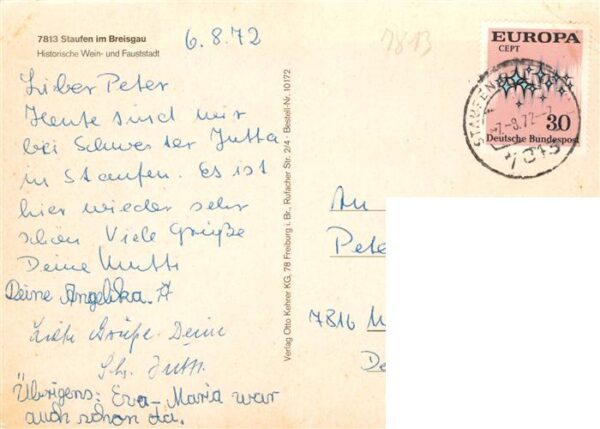 7813 Staufen im Breisgau
Historische Wein- und Fauststadt
6.8.72
7813
Lieber Peter
Heute sind wir
bei Schwester Jutta
in Staufen. Es ist
hier wieder sehr
schön Viele Grüße
Deine Mutti
Deine Angelika.
Liebe Grüße Deine
Jutta
Übrigens: Eva-Maria war
auch schon da.
Verlag Otto Kehrer KG, 78 Freiburg i. Br., Rufacher Str. 2/4 · Bestell-Nr. 10172
EUROPA
CEPT
30
Deutsche Bundespost
STAUFEN
7813
An
Peter
7816